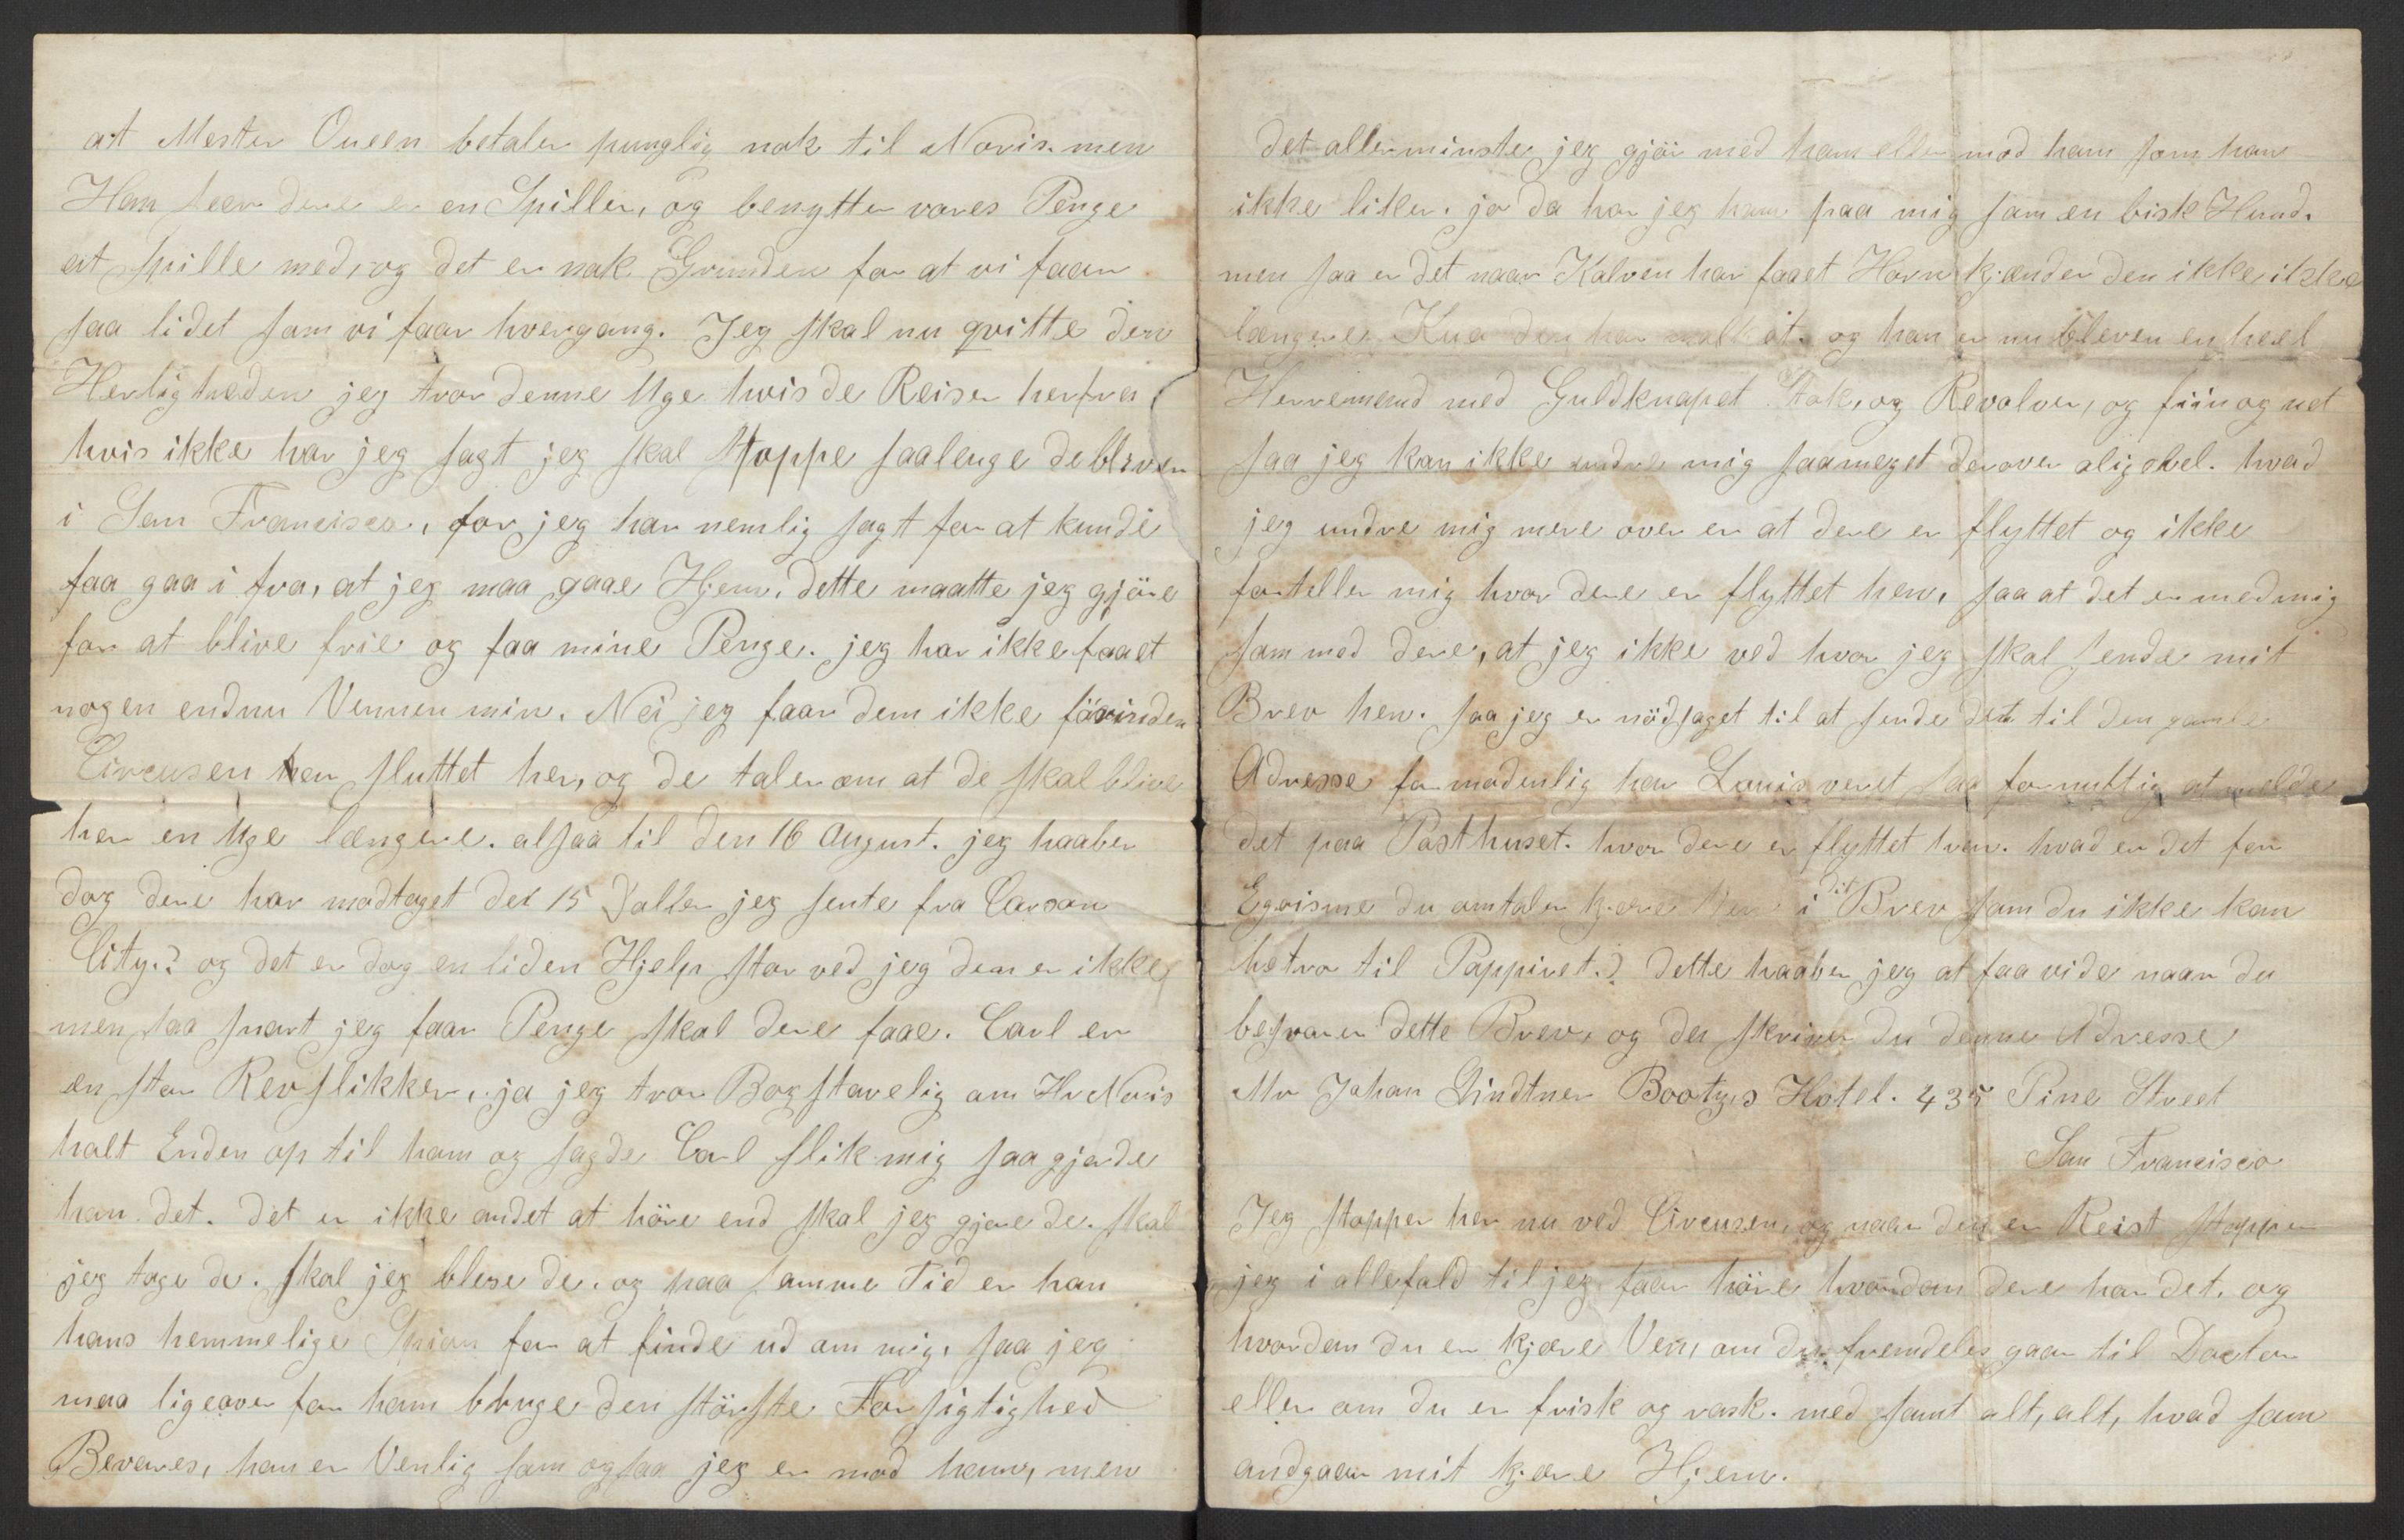 at Mester Queen betaler punglig nok til Noris. men
Han seer dere er en Spiller, og benytter vores Penge
at spille med, og det er nok Grunden for at vi faar
saa lidet som vi faar hvergang. Jeg skal nu qvitte den
Herligheden jeg tror denne Uge hvis de Reiser herfra
hvis ikke har jeg sagt jeg skal stoppe saalenge de bliver
i San Francisco, for jeg har nemlig sagt for at kunde
faa gaa i fra, at jeg maa gaae Hjem. dette maatte jeg gjöre
for at blive frie og faa mine Penge. jeg har ikke faaet
nogen endnu Vennen min. Nei jeg faar dem ikke förinden
Circusen her sluttet her, og de taler om at de skal blive
her en Uge længere. alsaa til den 16 August. jeg haaber
dog dere har modtaget det 15 Daller jeg sente fra Carson
City.? og det er dog en liden Hjelp stor ved jeg den er ikke
men saa snart jeg faar Penge skal dere faae. Carl er
en stor Revslikker, ja jeg tror Bogstavelig om Hr Noris
halt Enden op til ham og sagde Carl slik mig saa gjorde
han det. det er ikke andet at höre end skal jeg gjöre de. skal
jeg tage de. skal jeg blese de. og paa samme Tid er han
hans hemmelige Spion for at finde ud om mig, saa jeg
maa ligeover for ham bruge den störste Forsigtighed
Bevares, han er Venlig som ogsaa jeg er mod ham, men
det allerminste jeg gjör med ham eller mod ham som han
ikke liker. jo da har jeg ham paa mig som en bisk Hund.
men saa er det naar Kalven har faaet Horn kjender den ikke ikke
længere Kua den har malkat. og han er nu bleven en heel
Herremand med Guldknapet Stok, og Revolver, og fiin og net
saa jeg kan ikke undre mig saameget derover aligevel. hvad
jeg undre mig mere over er at dere er flyttet og ikke
forteller mig hvor dere er flyttet hen, saa at det er med mig
som med dere, at jeg ikke ved hvor jeg skal sende mit
Brev hen. saa jeg er nödsaget til at sende det til den gamle
Adresse formodenlig har Louis veret saa fornuftig at melde
det paa Posthuset. hvor dere er flyttet hen. hvad er det for
Egoisme du omtaler kjere Ven i dit Brev som du ikke kan
betro til Pappiret.? dette haaber jeg at faa vide naar du
besvarer dette Brev, og da skriver du denne Adresse
Mr Johan Lindtner Bootys Hotel. 435 Pine Street
San Francisco
Jeg stopper her nu ved Circusen, og naar den er Reist stopper
jeg i allefald til jeg faar höre hvordan dere har det. og
hvordan du er kjere Ven, om du fremdeles gaar til Doctor
eller om du er frisk og rask. med samt alt, alt, hvad som
andgaar mit kjere Hjem.